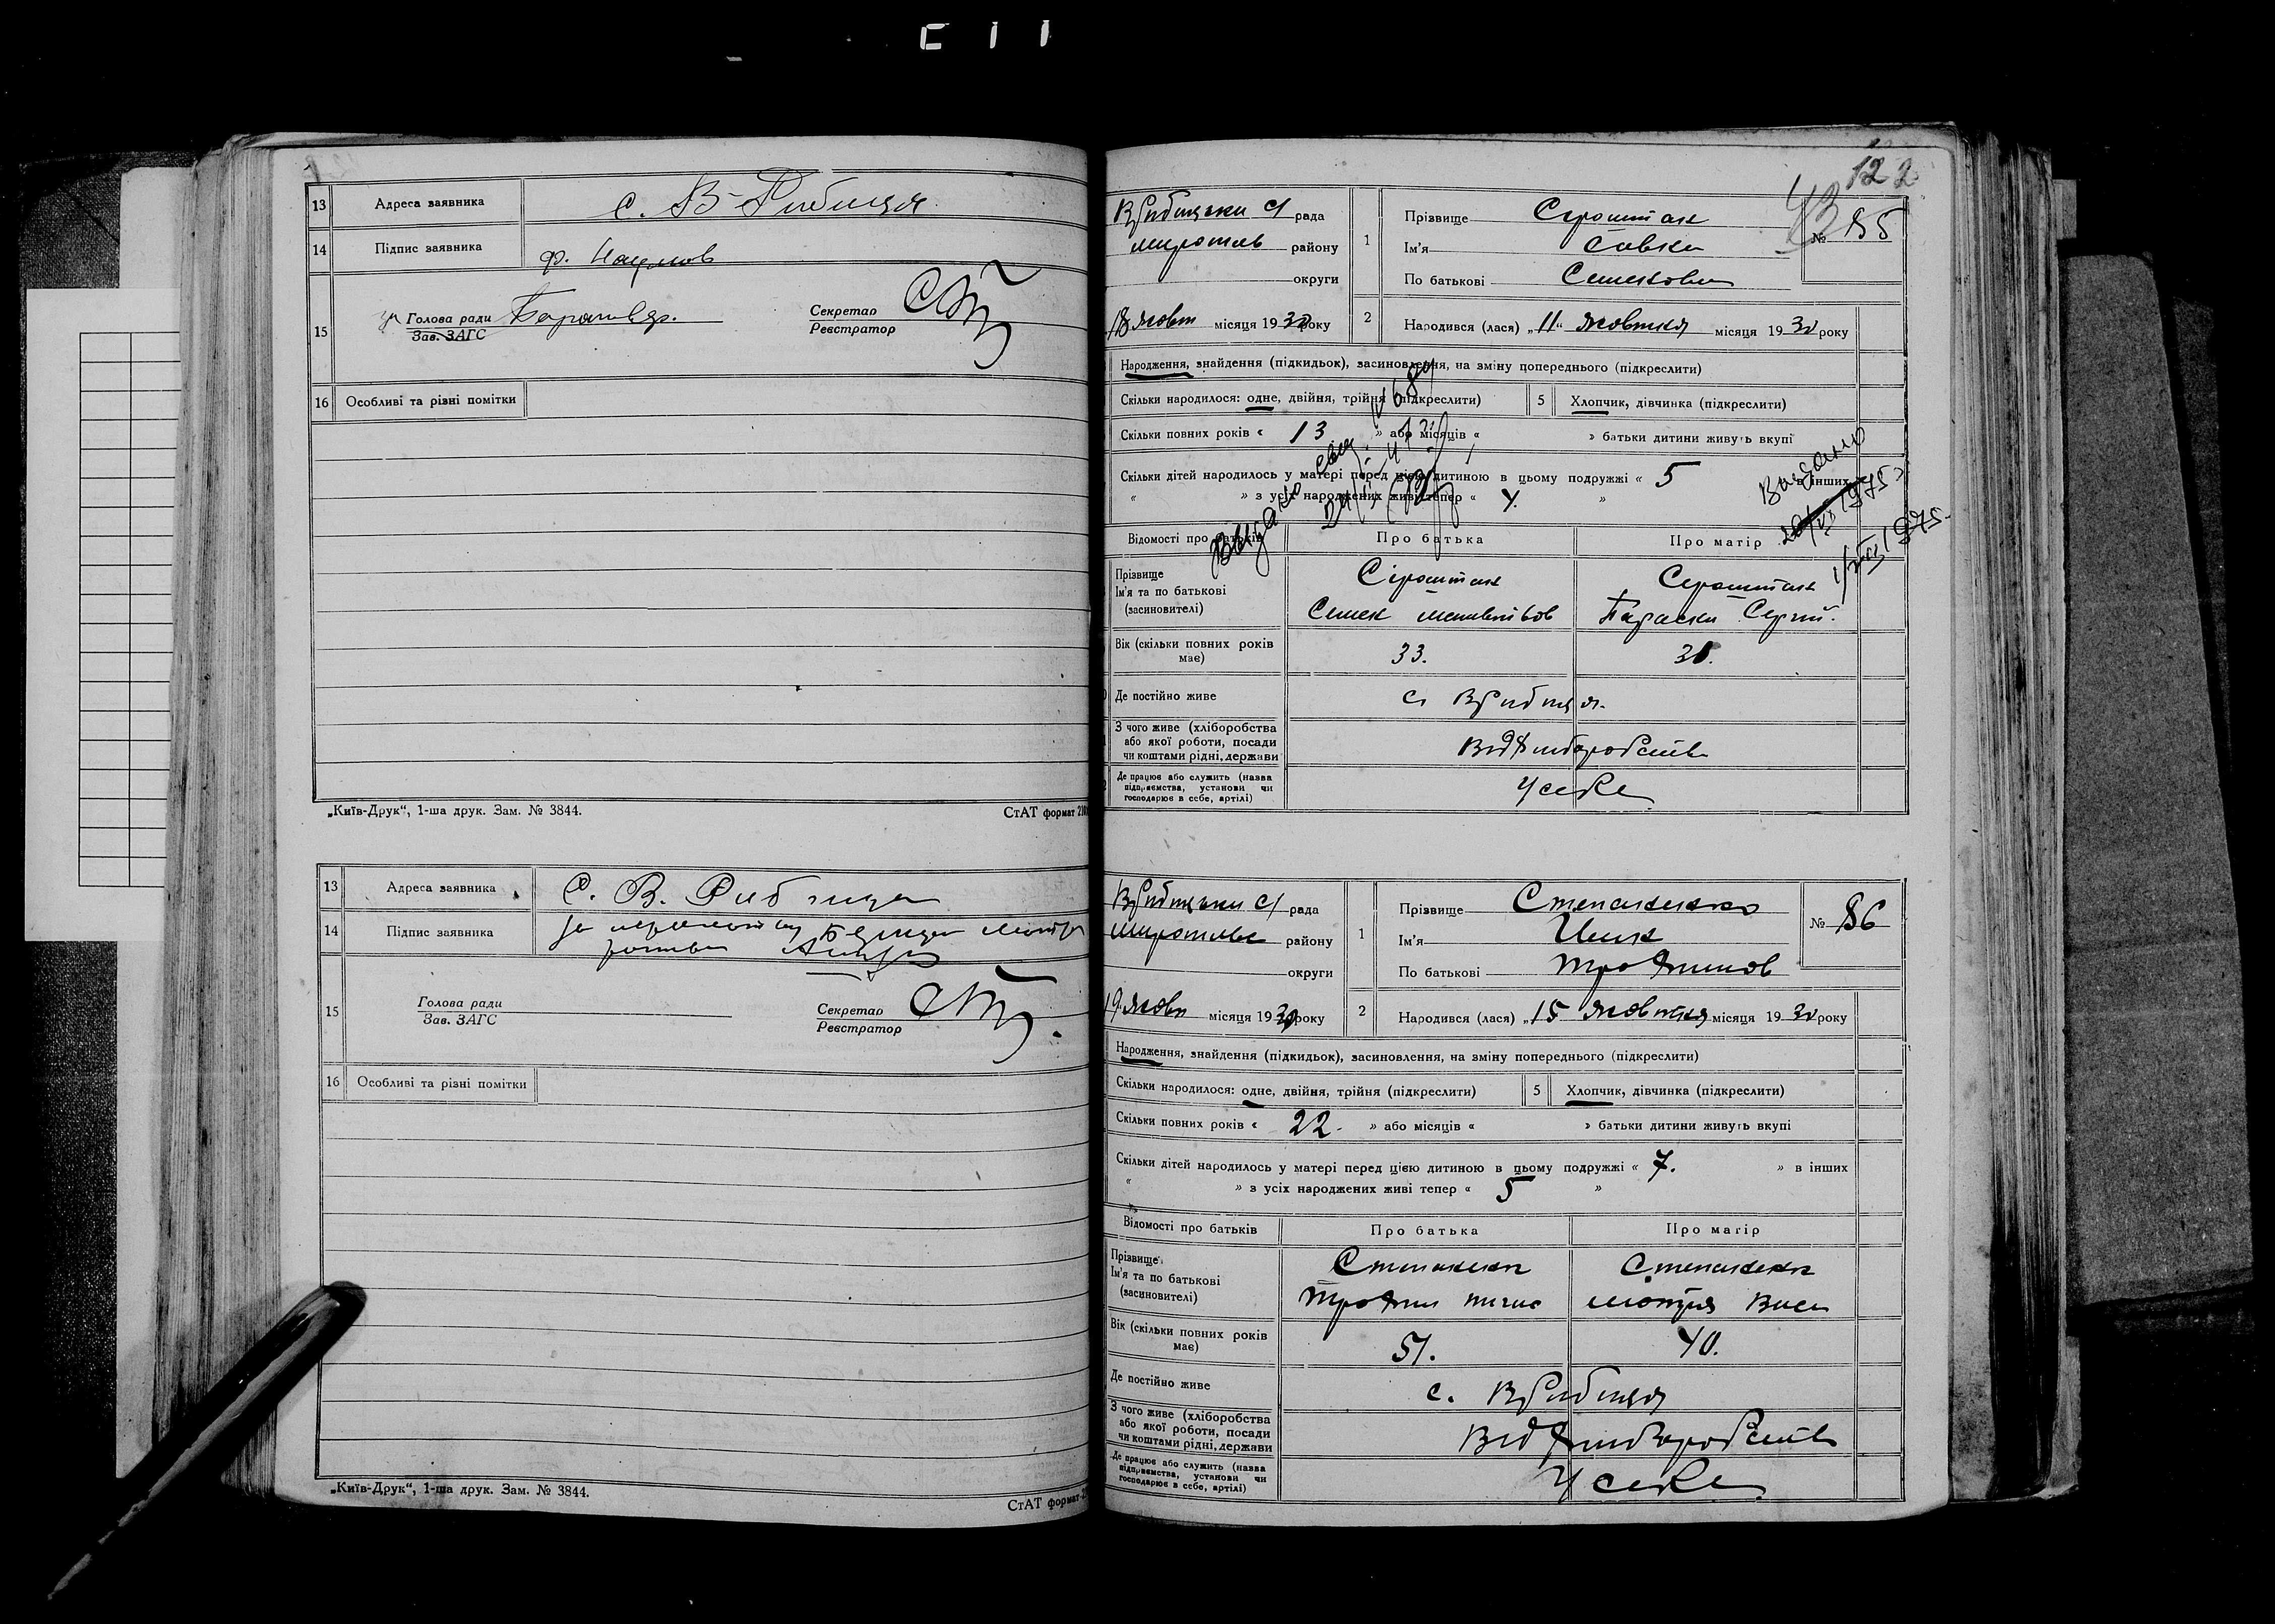 13 Адреса заявника с. В-Рибиця
14 Підпис заявника ф. Наумов
15 Голова ради
Зав. ЗАГС
Секретар
Реєстратор
16 Особливі та різні помітки
„Київ-Друк“, 1-ша друк. Зам. № 3844.
СтАТ формат
13 Адреса заявника С. В. Рибиця
14 Підпис заявника
15 Голова ради
Зав. ЗАГС
Секретар
Реєстратор
16 Особливі та різні помітки
„Київ-Друк“, 1-ша друк. Зам. № 3844.
СтАТ формат
122
43
рада
району
округи
1 Прізвище
Ім'я Савка
По батькові Семенович
№ 85
18 жовт місяця 1930 року
2 Народився (лася) „11“ жовтня місяця 1930 року
Народження, знайдення (підкидьок), засиновлення, на зміну попереднього (підкреслити)
Скільки народилося: одне, двійня, трійня (підкреслити) 5 Хлопчик, дівчинка (підкреслити)
Скільки повних років « 13 » або місяців « » батьки дитини живуть вкупі
Скільки дітей народилось у матері перед цією дитиною в цьому подружжі « 5 в інших
« » з усіх народжених живі тепер « 4. »
Видано
1975
Відомості про батьків Про батька Про матір
Прізвище
Ім'я та по батькові
(засиновителі)
Вік (скільки повних років має) 33.
Де постійно живе с. В Рибиця.
З чого живе (хліборобства
або якої роботи, посади
чи коштами рідні, держави
Від хліборобства
Де працює або служить (назва
підприємства, установи чи
господарює в себе, артілі)
У себе
рада
району
округи
1 Прізвище Степаненко
Ім'я
По батькові Трохимов
№ 86
19 жовт місяця 1930 року
2 Народився (лася) „15 жовтня місяця 1930 року
Народження, знайдення (підкидьок), засиновлення, на зміну попереднього (підкреслити)
Скільки народилося: одне, двійня, трійня (підкреслити) 5 Хлопчик, дівчинка (підкреслити)
Скільки повних років « 22. » або місяців « » батьки дитини живуть вкупі
Скільки дітей народилось у матері перед цією дитиною в цьому подружжі « 7. » в інших
« » з усіх народжених живі тепер « 5 »
Відомості про батьків Про батька Про матір
Прізвище
Ім'я та по батькові
(засиновителі)
Степаненко Степаненко
Трохим Мотря Васи
Вік (скільки повних років має) 51. 40.
Де постійно живе с. В Рибиця
З чого живе (хліборобства
або якої роботи, посади
чи коштами рідні, держави
Від хліборобства
Де працює або служить (назва
підприємства, установи чи
господарює в себе, артілі)
У себе